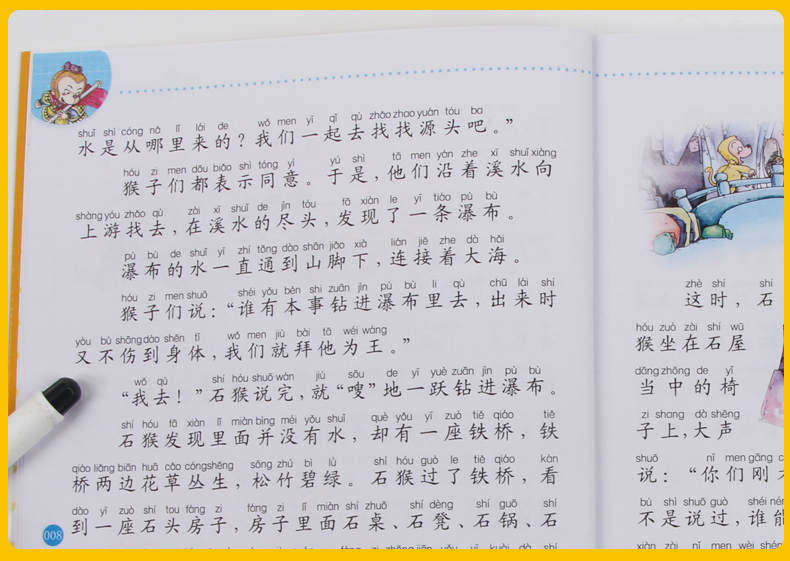 shuǐ shì cóng nǎ lǐ lái de wǒ men yì qǐ qù zhǎo zhao yuán tóu ba
水是从哪里来的？我们一起去找找源头吧。”
hóu zi men dōu biǎo shì tóng yì yú shì tā men yán zhe xī shuǐ xiàng
猴子们都表示同意。于是，他们沿着溪水向
shàng yóu zhǎo qù zài xī shuǐ de jìn tóu fā xiàn le yī tiáo pù bù
上游找去，在溪水的尽头，发现了一条瀑布。
pù bù de shuǐ yī zhí tōng dào shān jiǎo xià lián jiē zhe dà hǎi
瀑布的水一直通到山脚下，连接着大海。
hóu zi men shuō shéi yǒu běn shi zuān jìn pù bù li qù chū lái shí
猴子们说：“谁有本事钻进瀑布里去，出来时
yòu bù shāng dào shēn tǐ wǒ men jiù bài tā wéi wáng
又不伤到身体，我们就拜他为王。”
wǒ qù shí hóu shuō wán jiù sōu de yī yuè zuān jìn pù bù
“我去！”石猴说完，就“嗖”地一跃钻进瀑布。
shí hóu fā xiàn lǐ miàn bìng méi yǒu shuǐ què yǒu yī zuò tiě qiáo tiě
石猴发现里面并没有水，却有一座铁桥，铁
qiáo liǎng biān huā cǎo cóng shēng sōng zhú bì lǜ shí hóu guò le tiě qiáo kàn
桥两边花草丛生，松竹碧绿。石猴过了铁桥，看
dào yī zuò shí tou fáng zi fáng zi lǐ miàn shí zhuō shí dèng shí guō shí
到一座石头房子，房子里面石桌、石凳、石锅、石
008
zhè shí shí
这时，石
hóu zuò zài shí wū
猴坐在石屋
dāng zhōng de yǐ
当中的椅
zi shang dà shēng
子上，大声
shuō nǐ men gāng
说：“你们刚
bù shì shuō guò shéi
不是说过，谁能
xiàn zài nǐ men wèi